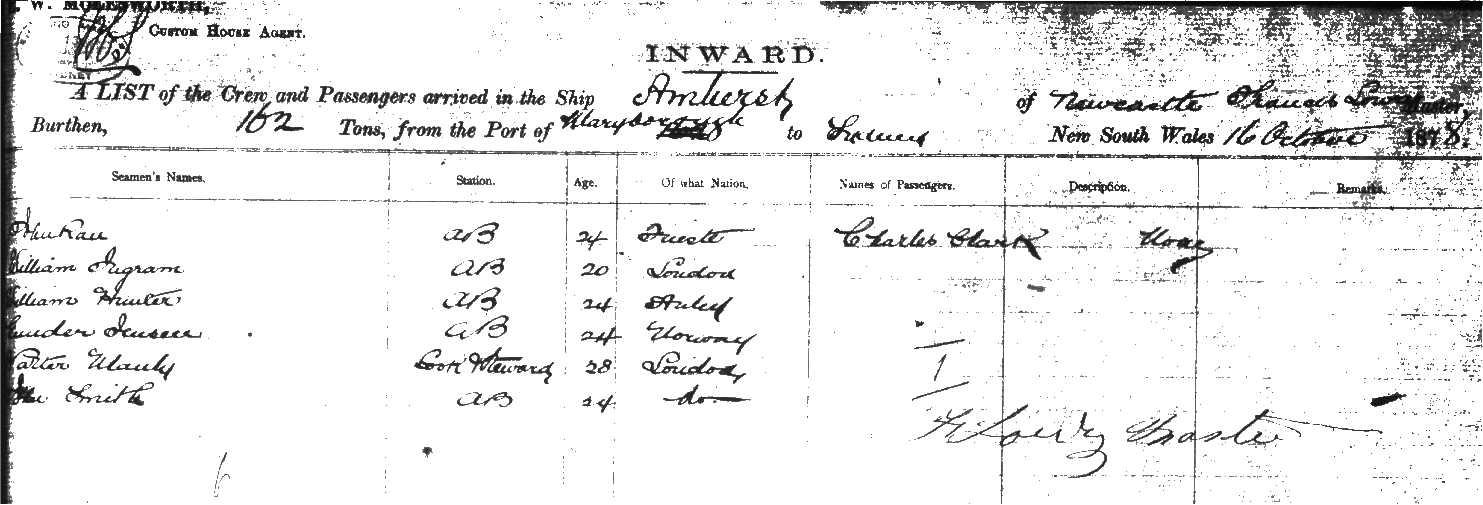 W. MOLESWORTH,
CUSTOM HOUSE AGENT.
INWARD.
A LIST of the Crew and Passengers arrived in the Ship Amherst of Newcastle Francis Lowry Master,
Burthen, 162 Tons, from the Port of Maryborough to Sydney New South Wales 16 October 1878.
Seamen's Names. Station. Age. Of what Nation. Names of Passengers. Description. Remarks.
AB 24 Trieste Charles Clark
William Ingram AB 20 London
William Hunter AB 24
Gunder Jensen AB 24 Norway
Manly Cook & Steward 28 London
Smith AB 24 do
1
F Lowry Master
6